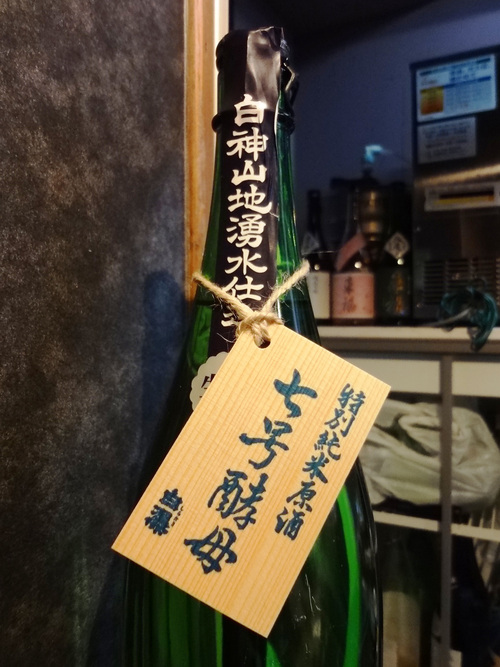 白神山地湧水仕
特別純米原酒
七号酵母
白瀑